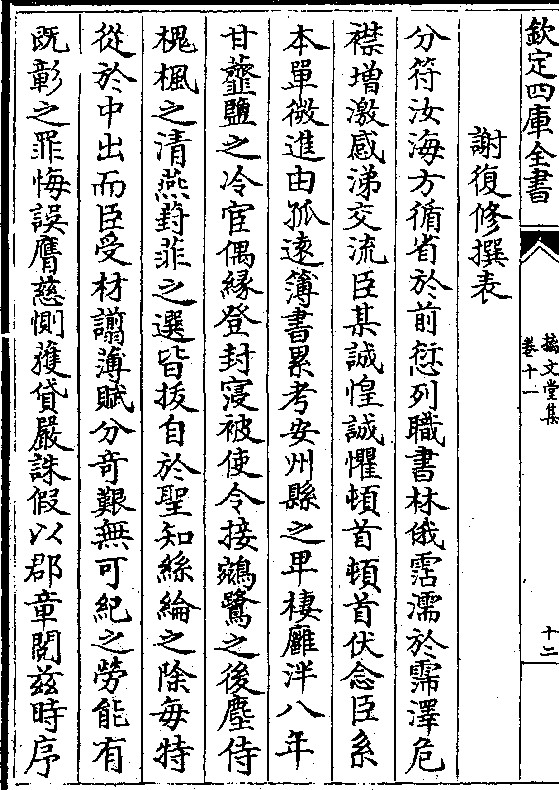 欽定四庫全書
摛文堂集
卷十一
十二
謝復修撰表
分符汝海方循省於前愆列職書林俄霑濡於霈澤危
襟增激感涕交流臣某誠惶誠懼頓首頓首伏念臣系
本單微進由孤遠簿書累考安州縣之卑棲雝泮八年
甘虀鹽之冷宦偶緣登封寖被使令接鵷鷺之後塵侍
槐楓之清燕葑菲之選皆拔自於聖知絲綸之除每特
從於中出而臣受材譾薄賦分奇艱無可紀之勞能有
既彰之罪悔誤膺慈惻獲貸嚴誅假以郡章閱兹時序